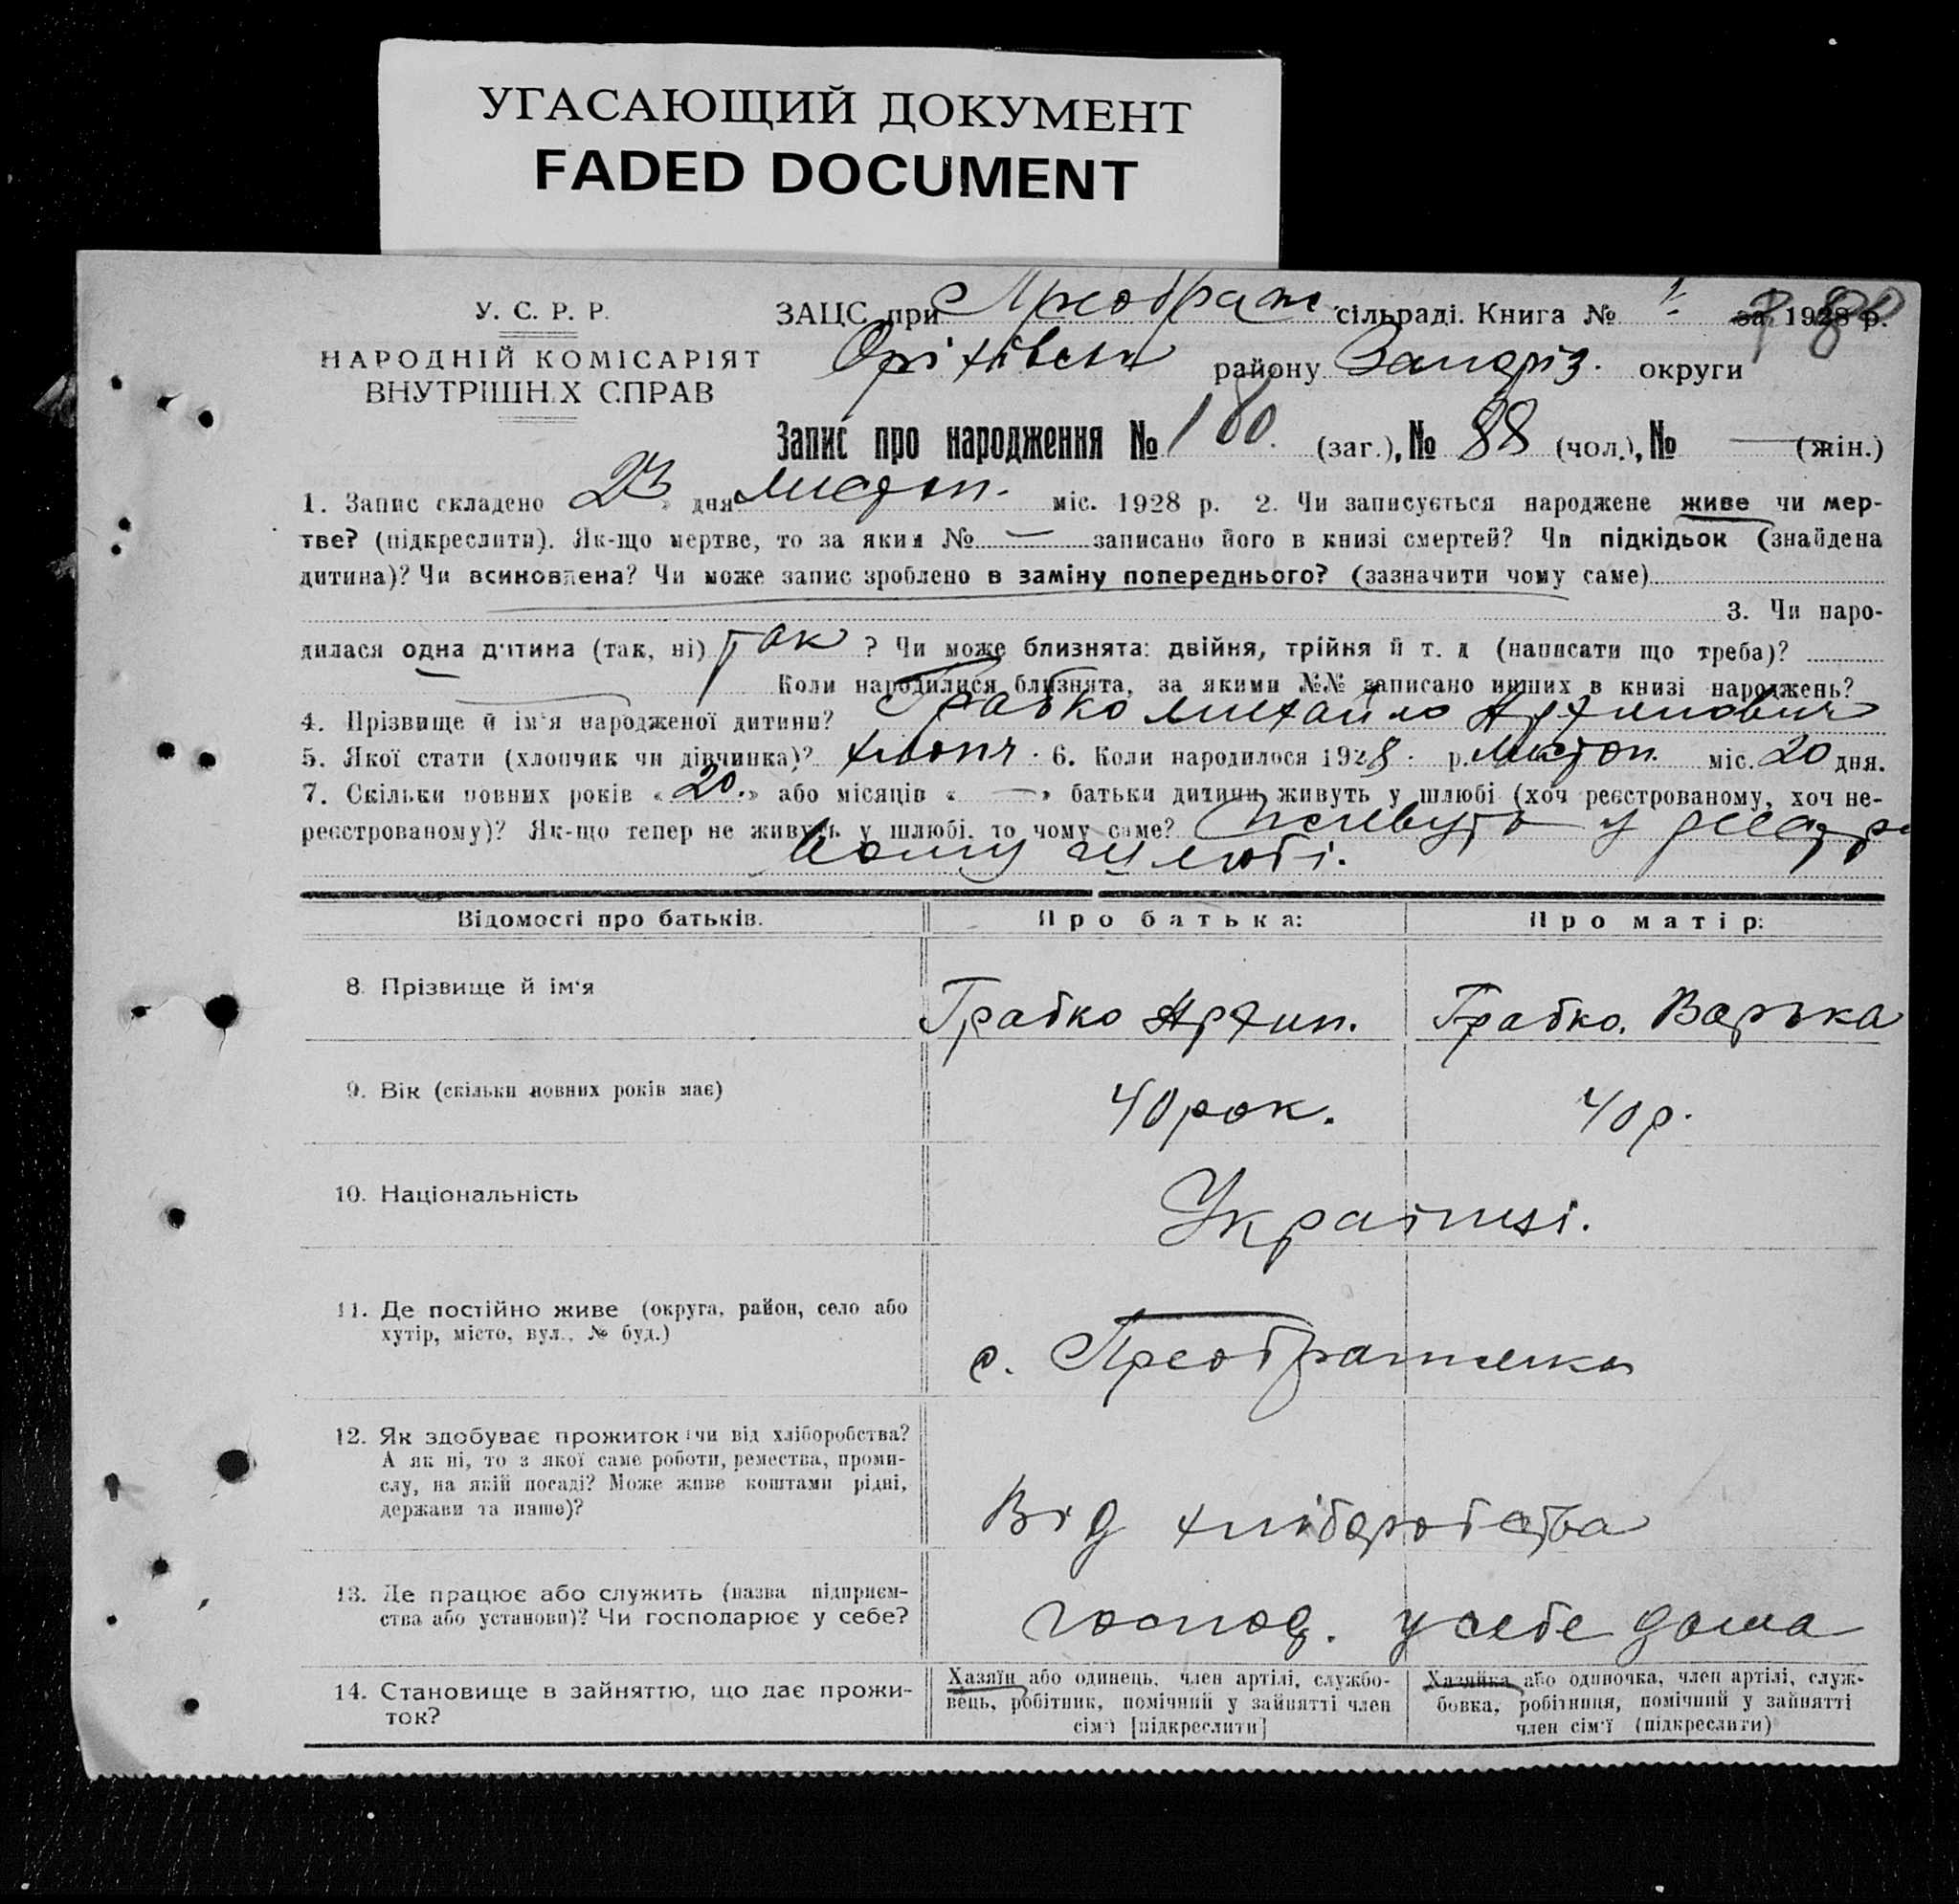 УГАСАЮЩИЙ ДОКУМЕНТ
FADED DOCUMENT
У. С. Р. Р.
НАРОДНІЙ КОМІСАРІЯТ
ВНУТРІШН.Х СПРАВ
ЗАЦС при Преображ. сільраді. Книга № 1 за 1928 р.
Оріхівськ району Запоріз. округи
Запис про народження № 180. (заг.), № 88 (чол.), № — (жін.)
1. Запис складено 23 дня листоп. міс. 1928 р. 2. Чи записується народжене живе чи мер-
тве? (підкреслити). Як-що мертве, то за яким № — записано його в книзі смертей? Чи підкідьок (знайдена
дитина)? Чи всиновлена? Чи може запис зроблено в заміну попереднього? (зазначити чому саме)
3. Чи наро-
дилася одна дитина (так, ні) так ? Чи може близнята: двійня, трійня й т. д (написати що треба)?
Коли народилися близнята, за якими №№ записано инших в книзі народжень?
4. Прізвище й ім'я народженої дитини? Грабко Михайло Архипович
5. Якої стати (хлопчик чи дівчинка)? хлопч. 6. Коли народилося 1928. р. Листоп. міс. 20 дня.
7. Скільки повних років «20.» або місяців «—» батьки дитини живуть у шлюбі (хоч реєстрованому, хоч не-
реєстрованому)? Як-що тепер не живуть у шлюбі, то чому саме? Живуть у реєстро
ваному шлюбі.
Відомості про батьків. Про батька: Про матір:
8. Прізвище й ім'я Грабко Архип. Грабко. Варька
9. Вік (скільки повних років має) 40 рок. 40 р.
10. Національність Українці.
11. Де постійно живе (округа, район, село або
хутір, місто, вул., № буд.)
с. Преображенка
12. Як здобуває прожиток (чи від хліборобства?
А як ні, то з якої саме роботи, ремества, проми-
слу, на якій посаді? Може живе коштами рідні,
держави та инше)?
Від хліборобства
13. Де працює або служить (назва підприєм-
ства або установи)? Чи господарює у себе?
господ. у себе дома
14. Становище в зайняттю, що дає прожи-
ток?
Хазяїн або одинець, член артілі, службо-
вець, робітник, помічний у зайнятті член
сім'ї [підкреслити]
Хазяйка або одиночка, член артілі, служ-
бовка, робітниця, помічний у зайнятті
член сім'ї (підкреслити)